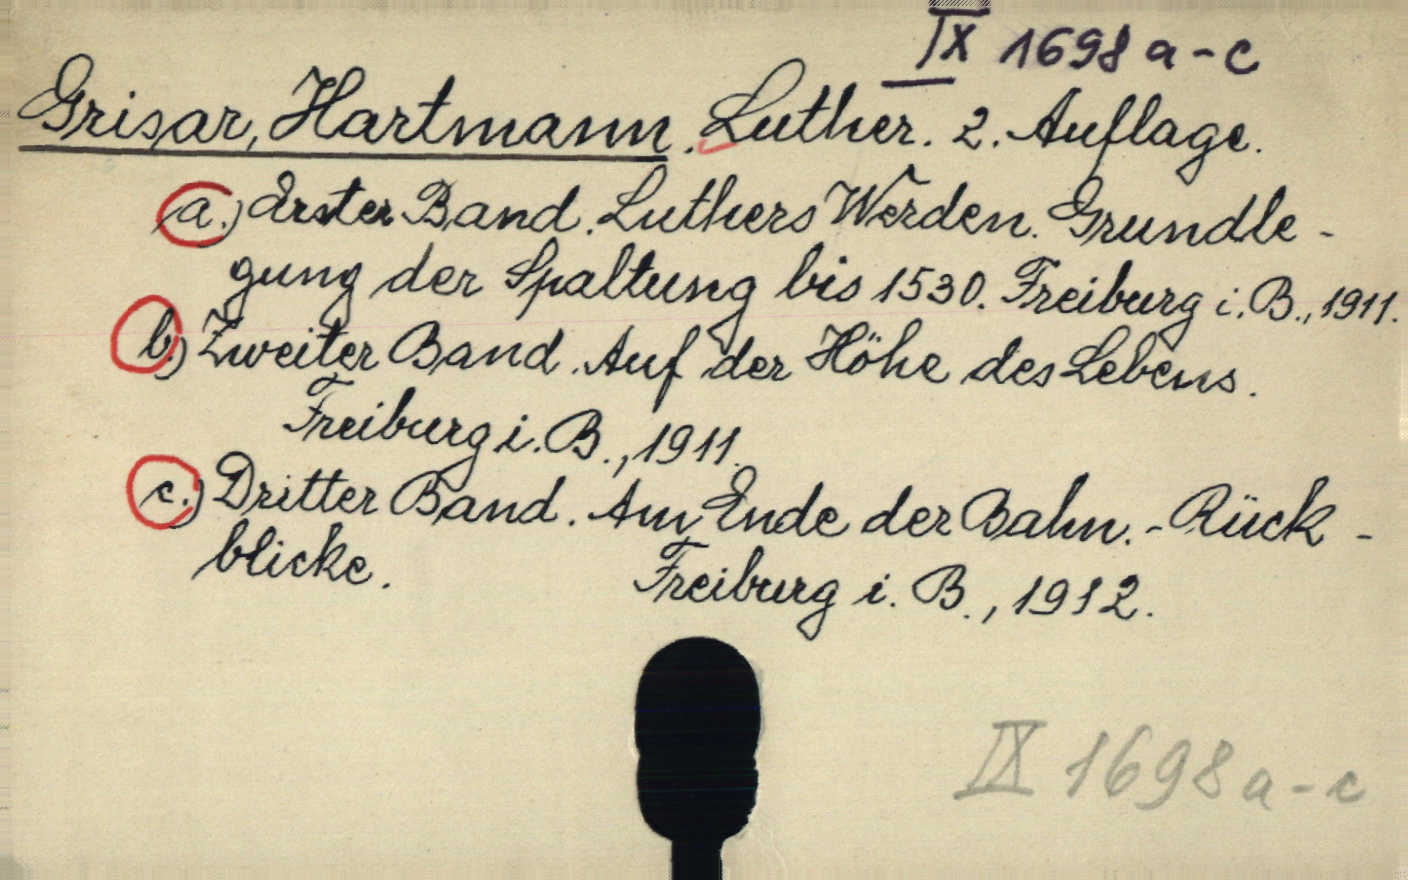 IX 1698 a-c
Grisar, Hartmann. Luther. 2. Auflage.
a.) Erster Band. Luthers Werden. Grundle-
gung der Spaltung bis 1530. Freiburg i. B., 1911.
b.) Zweiter Band. Auf der Höhe des Lebens.
Freiburg i. B., 1911.
c.) Dritter Band. Am Ende der Bahn. - Rück-
blicke. Freiburg i. B., 1912.
IX 1698 a-c